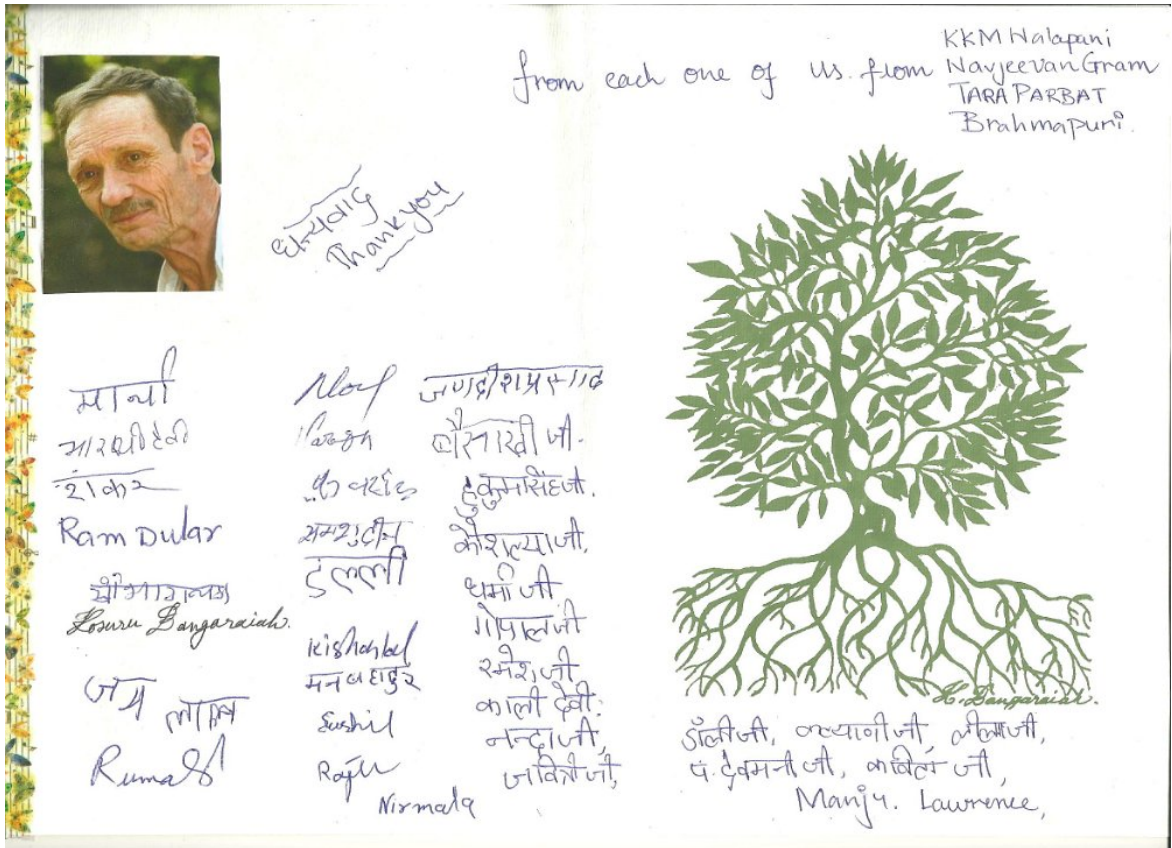 from each one of us. from
KKM Nalapani
Navjeevan Gram
TARA PARBAT
Brahmapuri.
धन्यवाद
Thank you
शंकर
Ram Dular
Kosuru Bangaraiah.
जय लाल
Ruma
शमशुद्दीन
डल्ली
Kishanlal
मनबहादुर
Sushil
Raju
Nirmala
जगदीश प्रसाद
बैसाखी जी.
हुकुमसिंहजी.
कौशल्याजी,
धर्मा जी
गोपालजी
रमेशजी
काली देवी.
नन्दाजी,
जवित्रीजी,
K. Bangaraiah.
डॉलीजी, कल्याणीजी, लीलाजी,
पं. देवमनीजी, कविता जी,
Manju. Lawrence,